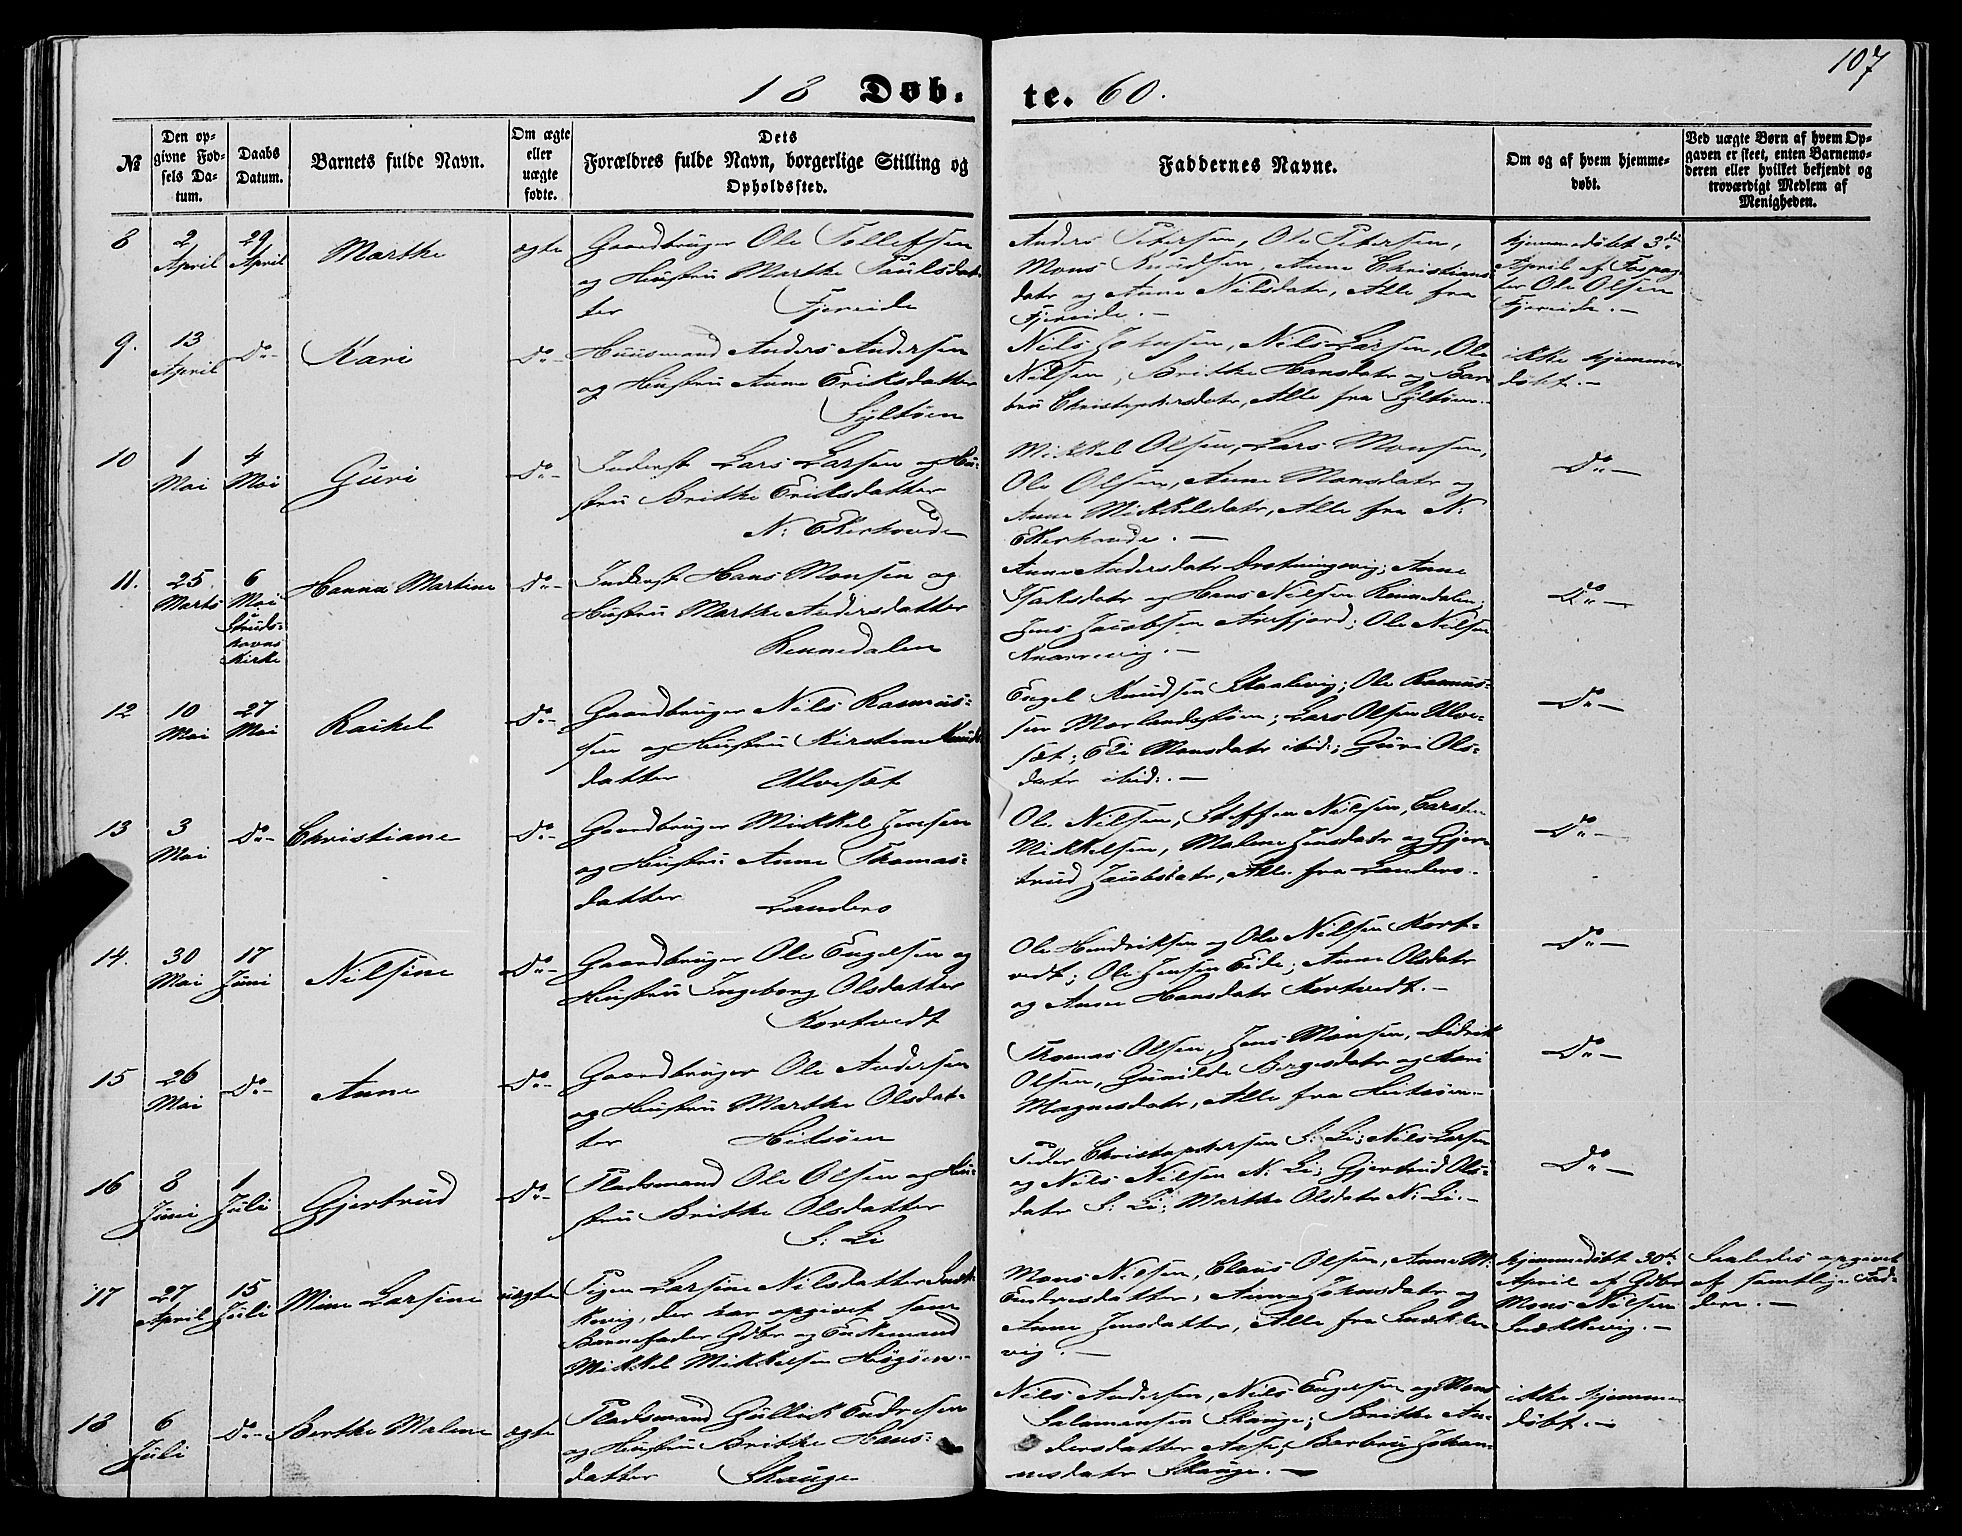 107
18 Døb- te. 60.
№
Den op-
givne Fød-
sels Da-
tum.
Daabs
Datum.
Barnets fulde Navn.
Om ægte
eller
uægte
fødte.
Dets
Forældres fulde Navn, borgerlige Stilling og
Opholdssted.
Faddernes Navne.
Om og af hvem hjemme-
døbt.
Ved uægte Børn af hvem Op-
gaven er skeet, enten Barnemo-
deren eller hvilket bekjendt og
troværdigt Medlem af
Menigheden.
8
2
April
29
April
Marthe
ægte
Gaardbruger Ole Tollefsen
og Hustru Marthe Paulsdat-
ter Fjereide
Anders Petersen, Ole Petersen,
Mons Knudsen, Anne Christians-
datr og Anne Nilsdatr, Alle fra
Fjereide.-
hjemmedøbt 3die
April af
Ole Olsen
Fjereide.-
9.
13
April
Do-
Kari
Do-
Huusmand Anders Andersen
og Hustru Anne Eriksdatter
Syltøen
Nils Johnsen, Nils Larsen, Ole
Nilsen, Brithe Hansdatr og Bar-
bru Christophersdatr, Alle fra Syltøen.-
ikke hjemme-
døbt.-
10
1
Mai
4
Mai
Guri
Do-
Inderst Lars Larsen og Hu-
stru Brithe Eriksdatter
N: Ekerhovde
Mikkel Olsen, Lars Monsen,
Ole Olsen, Anne Monsdatr og
Anne Mikkelsdatr, Alle fra N:
Ekerhovde.-
Do-
11.
25
Marts
6
Mai
i
Struds-
havns
Kirke
Hanna Martine
Do-
Inderst Hans Monsen og
Hustru Marthe Andersdatter
Rennedalen
Anne Andersdatr Drotningsvig; Anne
Isaksdatr og Hans Nilsen Rennedalen;
Jens Jacobsen Arefjord; Ole Nilsen
Knarrevig.-
Do-
12
10
Mai
27
Mai
Rakel
Do-
Gaardbruger Nils Rasmus-
sen og Hustru Kirstine Knuds-
datter Ulvesæt
Engel Knudsen Skaalevig; Ole Rasmus-
sen Morlandsstøen; Lars Olsen Ulve-
sæt; Eli Monsdatr ibid:; Guri Ols-
datr ibid:.-
Do-
13
3
Mai
Do-
Christiane
Do-
Gaardbruger Mikkel Jensen
og Hustru Anne Thomas-
datter Landero
Ole Nilsen, Steffen Nilsen, Carsten
Mikkelsen, Malene Jensdatr og Gjer-
trud Jacobsdatr, Alle fra Landero.-
Do-
14.
30
Mai
17
Juni
Nilsine
Do-
Gaardbruger Ole Engelsen og
Hustru Ingeborg Olsdatter
Kortvedt
Ole Hendriksen og Ole Nilsen Kort-
vedt; Ole Jensen Eide; Anne Olsdatr
og Anne Hansdatr Kortvedt.-
Do-
15
26
Mai
Do-
Anne
Do-
Gaardbruger Ole Andersen
og Hustru Marthe Olsdat-
ter Hitsøen
Thomas Olsen, Jens Monsen, Didrik
Olsen, Gunilde Børgesdatr og Kari
Magnesdatr, Alle fra Hitsøen.-
Do-
16
8
Juni
1
Juli
Gjertrud
Do-
Pladsmand Ole Olsen og Hu-
stru Brithe Olsdatter
S: Li
Peder Christophersen S: Li; Nils Larsen
og Nils Nilsen N: Li; Gjertrud Ols-
datr S: Li; Marthe Olsdatr N: Li.-
Do-
17
27
April
15
Juli
Mine Larsine
uægte
Pigen Larsine Nilsdatter Snek-
kevig, der har opgivet som
Barnefader Gdbr og Enkemand
Mikkel Mikkelsen Høgøen.-
Mons Nilsen, Claus Olsen, Anne M.
Endresdatter, Anne Johnsdatr og
Anne Jensdatter, Alle fra Snække-
vig.-
hjemmedøbt 30te
April af Gdbr
Mons Nilsen
Snækkevig.-
Saaledes opgivet
af samtlige Fad-
dere.-
18
6
Juli
Do-
Berthe Malene
ægte
Pladsmand Gullik Endresen
og Hustru Brithe Hans-
datter Skauge
Nils Andersen, Nils Engelsen og Mons
Salamonsen Skauge; Brithe An-
dersdatter Aase; Barbru Johan-
nesdatr Skauge.-
ikke hjemme-
døbt.-